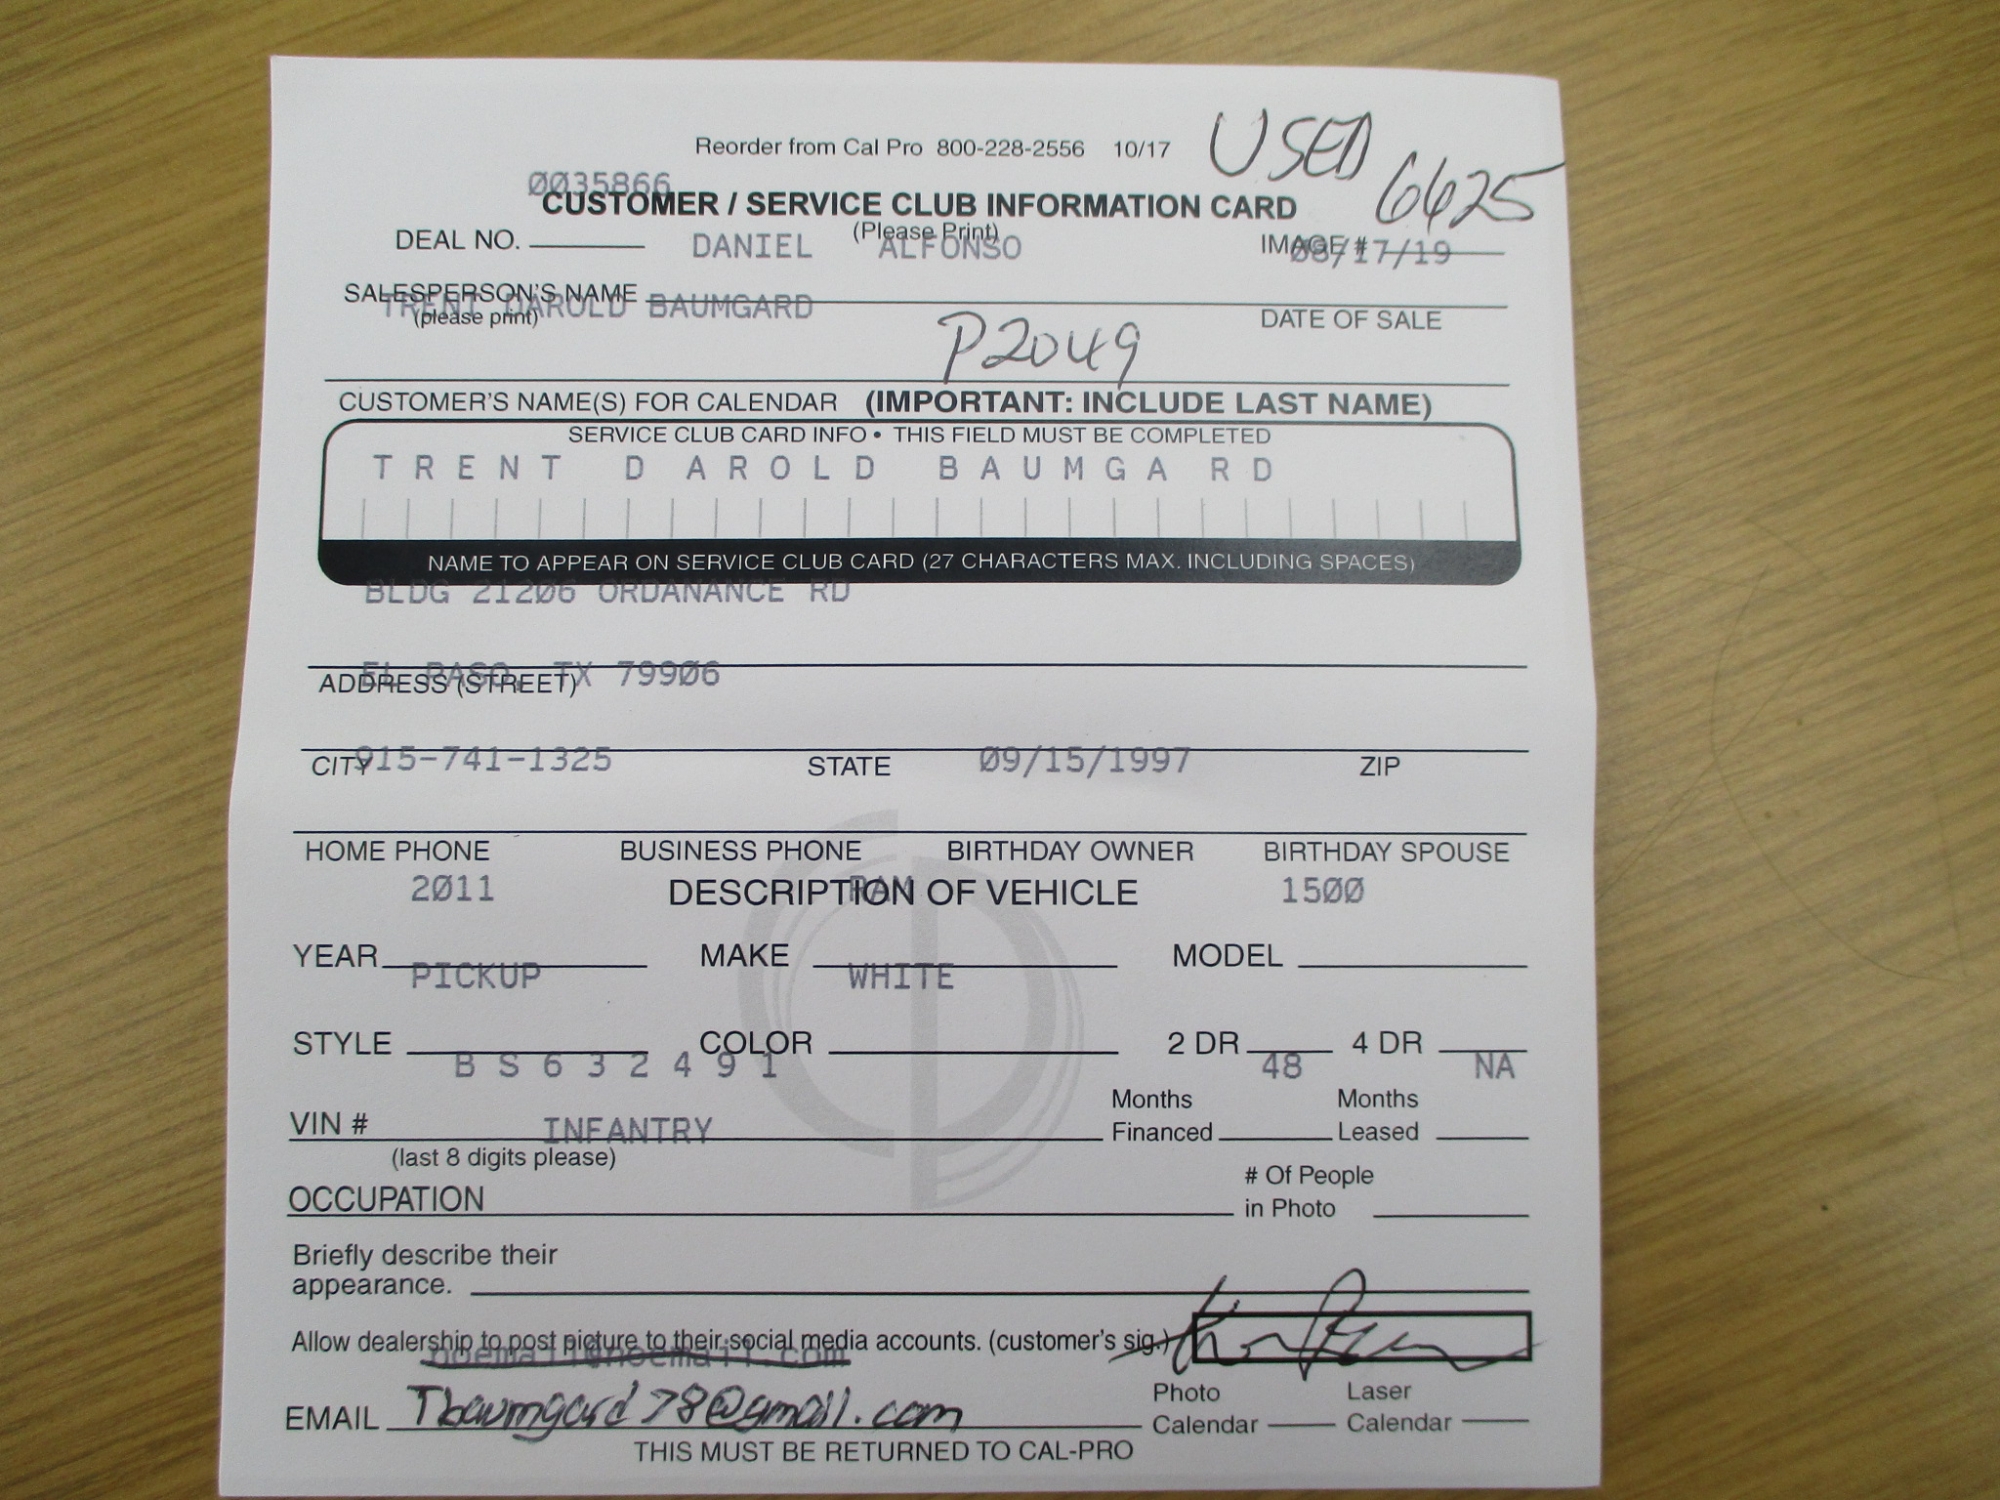 Reorder from Cal Pro 800-228-2556 10/17 USED
6425
0035866
CUSTOMER / SERVICE CLUB INFORMATION CARD
(Please Print)
DEAL NO. DANIEL ALFONSO IMAGE # 08/17/19
SALESPERSON'S NAME
(please print)
TRENT DAROLD BAUMGARD
DATE OF SALE
P2049
CUSTOMER'S NAME(S) FOR CALENDAR (IMPORTANT: INCLUDE LAST NAME)
SERVICE CLUB CARD INFO • THIS FIELD MUST BE COMPLETED
TRENT DAROLD BAUMGARD
NAME TO APPEAR ON SERVICE CLUB CARD (27 CHARACTERS MAX. INCLUDING SPACES)
BLDG 21206 ORDANANCE RD
EL PASO, TX 79906
ADDRESS (STREET)
915-741-1325 09/15/1997
CITY STATE ZIP
HOME PHONE BUSINESS PHONE BIRTHDAY OWNER BIRTHDAY SPOUSE
2011 RAM 1500
DESCRIPTION OF VEHICLE
YEAR MAKE MODEL
PICKUP WHITE
STYLE COLOR 2 DR 4 DR
BS632491 48 NA
VIN # Months Financed Months Leased
INFANTRY
(last 8 digits please)
OCCUPATION # Of People in Photo
Briefly describe their
appearance.
Allow dealership to post picture to their social media accounts. (customer's sig.)
noemail@noemail.com
EMAIL Tbaumgard78@gmail.com Photo Calendar Laser Calendar
THIS MUST BE RETURNED TO CAL-PRO